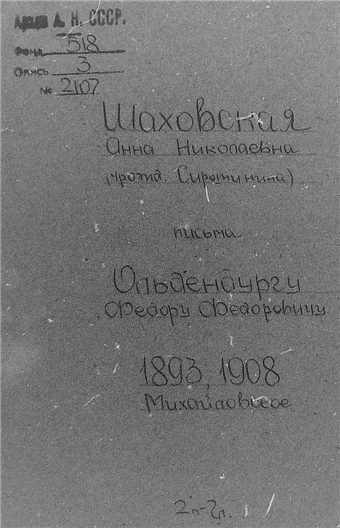 Архив А. Н. СССР.
Фонд 518
Опись 3
№ 2107
Шаховская
Анна Николаевна
(урожд. Сиротинина)
письма
Ольденбургу
Федору Федоровичу
1893, 1908
Михайловское
2п-7л.